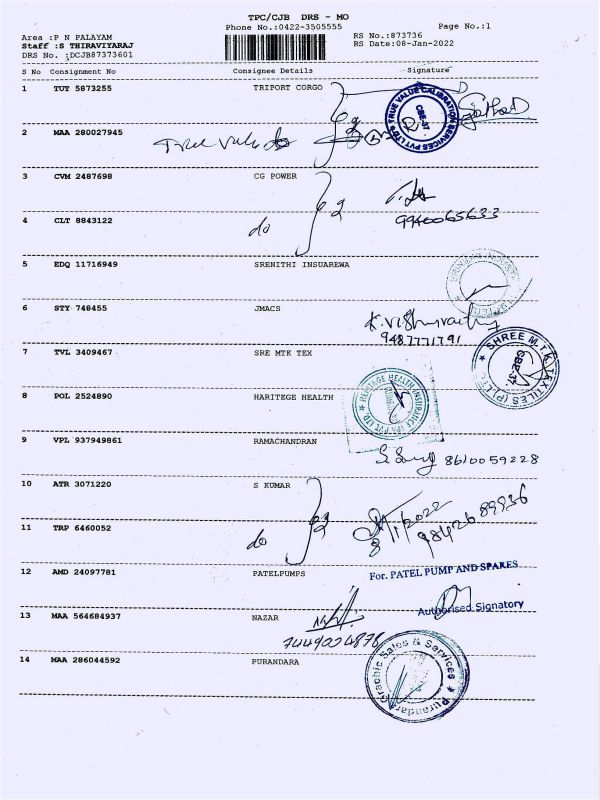 TPC/CJB DRS - MO
Phone No.:0422-3505555
Page No.:1
Area :P N PALAYAM
RS No.:873736
Staff :S THIRAVIYARAJ
RS Date:08-Jan-2022
DRS No. :DCJB87373601
S No Consignment No Consignee Details Signature
1 TUT 5873255 TRIPORT CORGO
TRUE VALUE CALIBRATION SERVICES PVT LTD
CBE-37
2 MAA 280027945
True Value
3 CVM 2487698 CG POWER
9940065633
4 CLT 8843122 do
5 EDQ 11716949 SRENITHI INSUAREWA
6 STY 748455 JMACS
9487771791
7 TVL 3409467 SRE MTK TEX
SHREE M.T.K. TEXTILES (P) LTD
CBE-37
8 POL 2524890 HARITEGE HEALTH
HERITAGE HEALTH INSURANCE TPA PVT LTD
9 VPL 937949861 RAMACHANDRAN
8610059228
10 ATR 3071220 S KUMAR
8/1/2022
9842689936
11 TRP 6460052 do
12 AMD 24097781 PATELPUMPS
For. PATEL PUMP AND SPARES
Authorised Signatory
13 MAA 564684937 NAZAR
7449004878
14 MAA 286044592 PURANDARA
Purandara Graphic Sales & Services